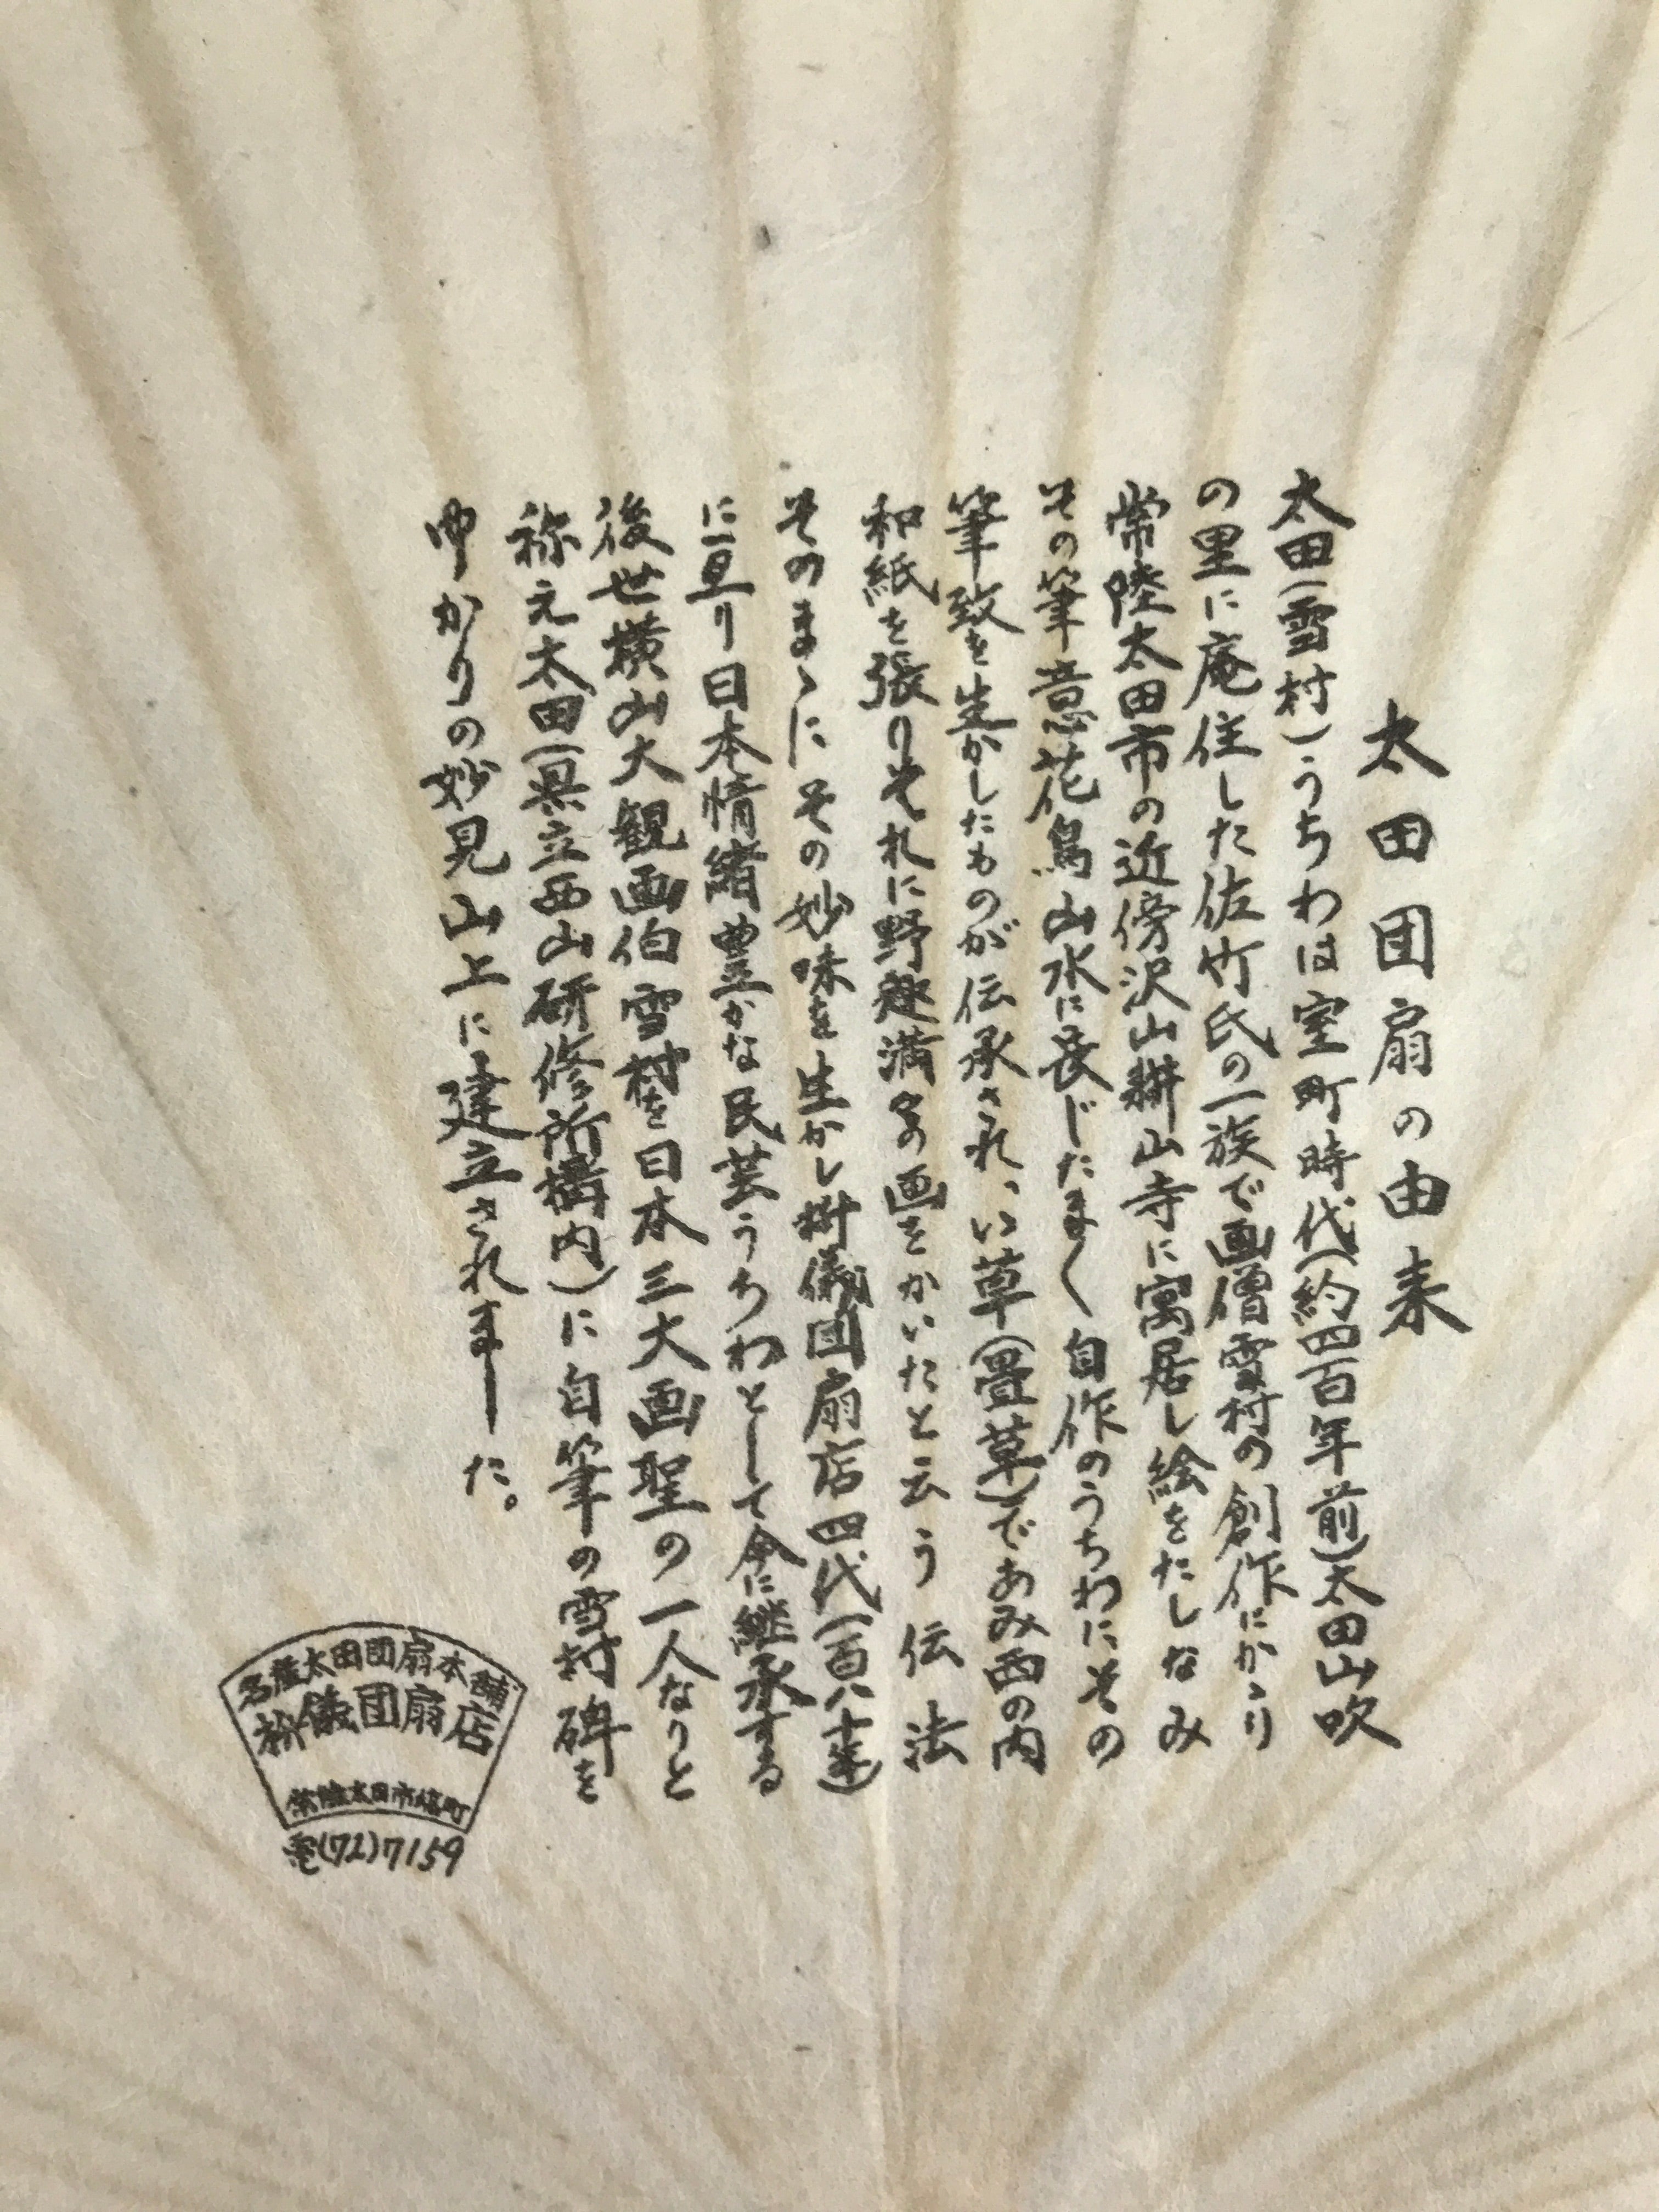 太田団扇の由来
太田(雪村)うちわは室町時代(約四百年前)太田山吹
の里に庵住した佐竹氏の一族で画僧雪村の創作にかゝり
常陸太田市の近傍沢山耕山寺に寓居し絵をたしなみ
その筆意花鳥山水に長じたま〱自作のうちわにその
筆致を生かしたものが伝承され、い草(畳草)であみ西の内
和紙を張りそれに野趣満々の画をかいたと云う伝法
そのまゝにその妙味を生かし枡儀団扇店四代(百八十年)
に亘り日本情緒豊かな民芸うちわとして今に継承する
後世横山大観画伯雪村を日本三大画聖の一人なりと
称え太田(県立西山研修所構内)に自筆の雪村碑を
ゆかりの妙見山上に建立されました。
名産太田団扇本舗
枡儀団扇店
常陸太田市塙町
電(72)7159